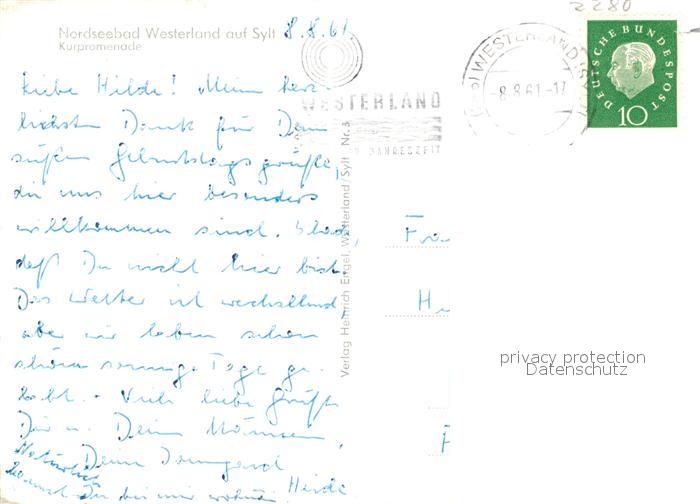 2280
Nordseebad Westerland auf Sylt 8.8.61
Kurpromenade
Liebe Hilde! Mein herz-
lichsten Dank für Dein
süßen Geburtstagsgrüße,
die uns hier besonders
willkommen sind. Schade,
daß Du nicht hier bist.
Das Wetter ist wechselhaft,
aber wir haben schon
schöne sonnige Tage ge-
habt. - Viele liebe Grüße
Dir u. Dein
Deine Irmgard
Heide
Natürlich
kannst Du bei mir wohnen
Verlag Heinrich Engel, Westerland/Sylt Nr. 3
WESTERLAND
JAHRESZEIT
WESTERLAND
-8.8.61.-17
DEUTSCHE BUNDESPOST
10
Fra
privacy protection
Datenschutz